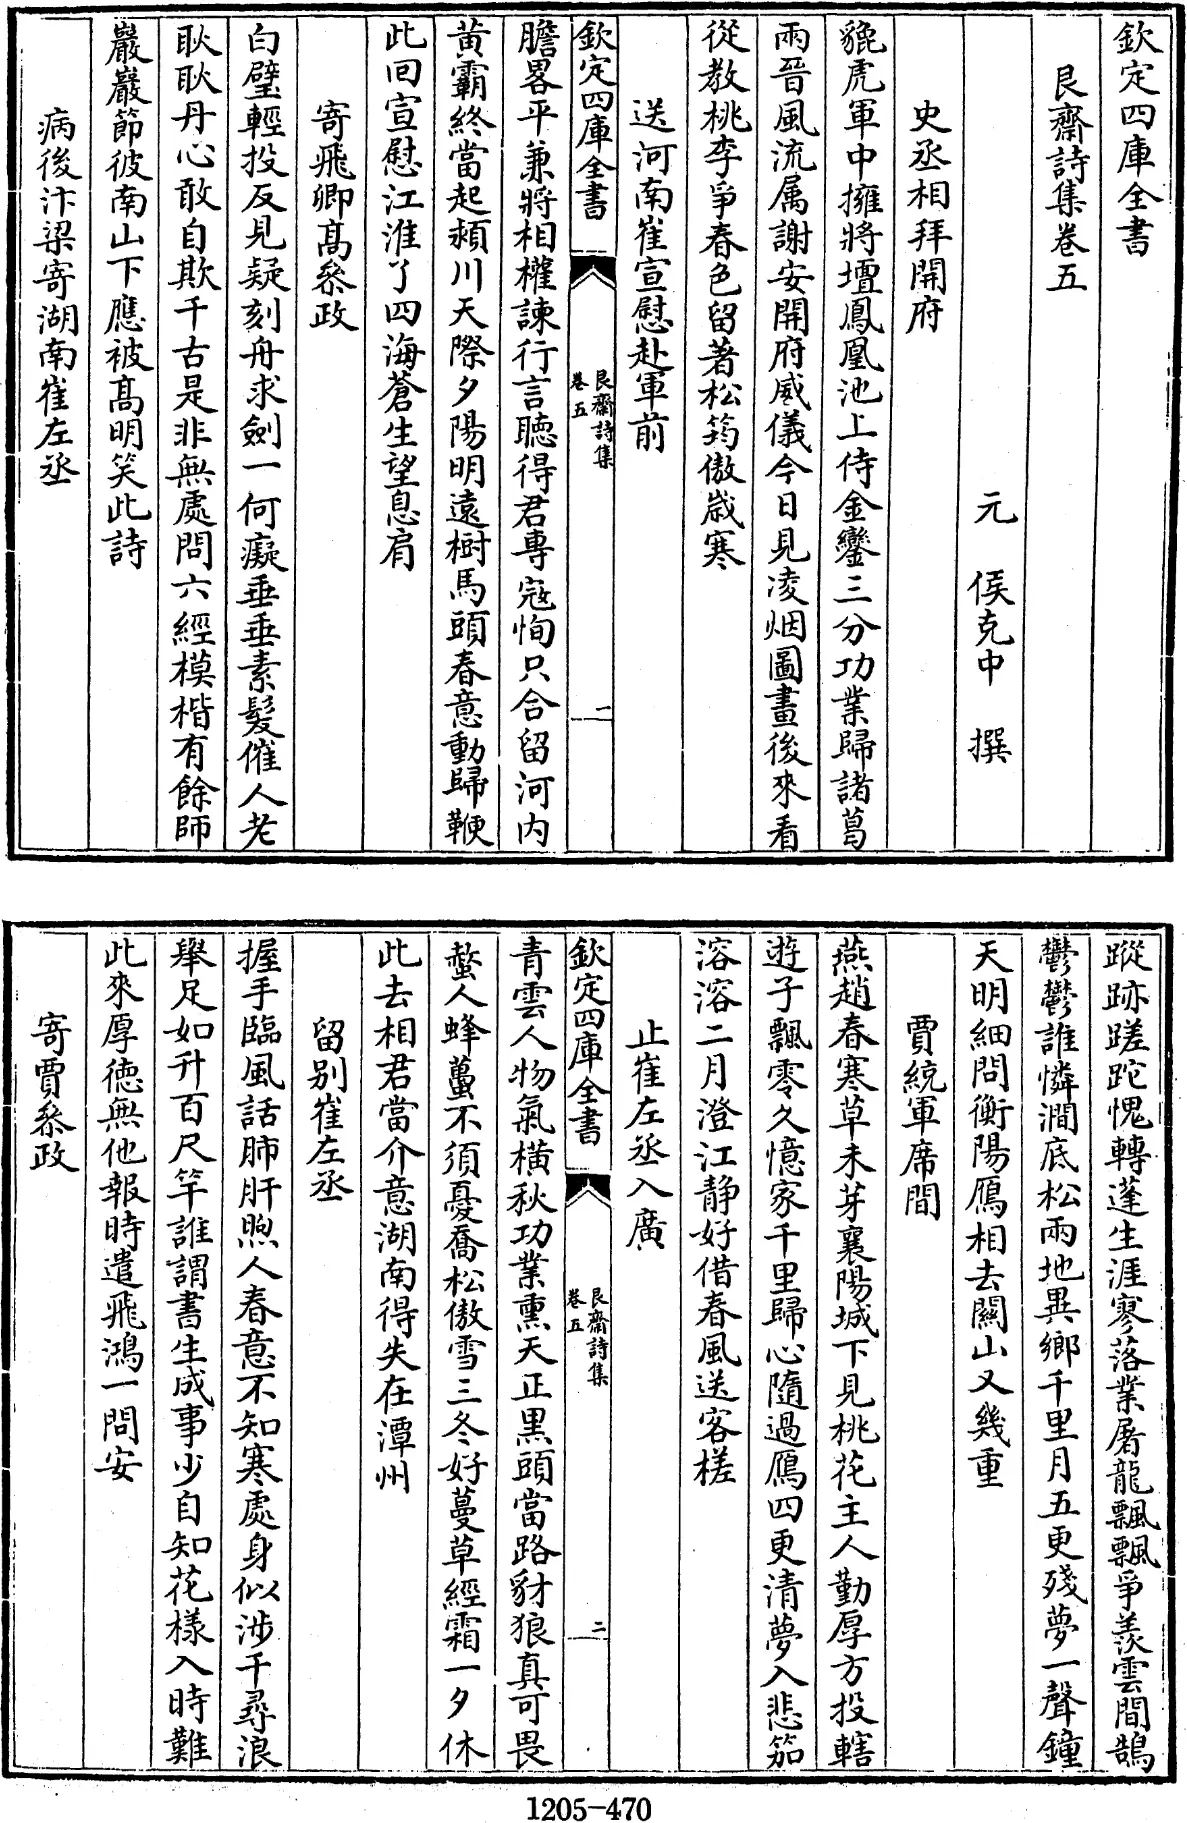 欽定四庫全書
艮齋詩集卷五
元　侯克中　撰
史丞相拜開府
貔虎軍中擁將壇鳳凰池上侍金鑾三分功業歸諸葛
兩晉風流属謝安開府威儀今日見凌烟圖畫後來看
從教桃李爭春色留著松筠傲歲寒
送河南崔宣慰赴軍前
欽定四庫全書
艮齋詩集
卷五
一
膽畧平兼將相權諫行言聴得君專寇恂只合留河内
黄霸終當起潁川天際夕陽明遠樹馬頭春意動歸鞭
此回宣慰江淮了四海蒼生望息肩
寄飛卿髙叅政
白璧輕投反見疑刻舟求劍一何癡垂垂素髮催人老
耿耿丹心敢自欺千古是非無處問六經模楷有餘師
巖巖節彼南山下應被髙明笑此詩
病後汴梁寄湖南崔左丞
蹤跡蹉跎愧轉蓬生涯寥落業屠龍飄飄爭羨雲間鵠
鬱鬱誰憐澗底松兩地異鄉千里月五更殘夢一聲鐘
天明細問衡陽鴈相去關山又幾重
賈統軍席間
燕趙春寒草未芽襄陽城下見桃花主人勤厚方投轄
遊子飄零久憶家千里歸心隨過鴈四更清夢入悲笳
溶溶二月澄江静好借春風送客槎
止崔左丞入廣
欽定四庫全書
艮齋詩集
卷五
二
青雲人物氣横秋功業熏天正黒頭當路豺狼真可畏
螫人蜂蠆不須憂喬松傲雪三冬好蔓草經霜一夕休
此去相君當介意湖南得失在潭州
留别崔左丞
握手臨風話肺肝煦人春意不知寒處身似涉千尋浪
舉足如升百尺竿誰謂書生成事少自知花様入時難
此來厚徳無他報時遣飛鴻一問安
寄賈叅政
1205-470